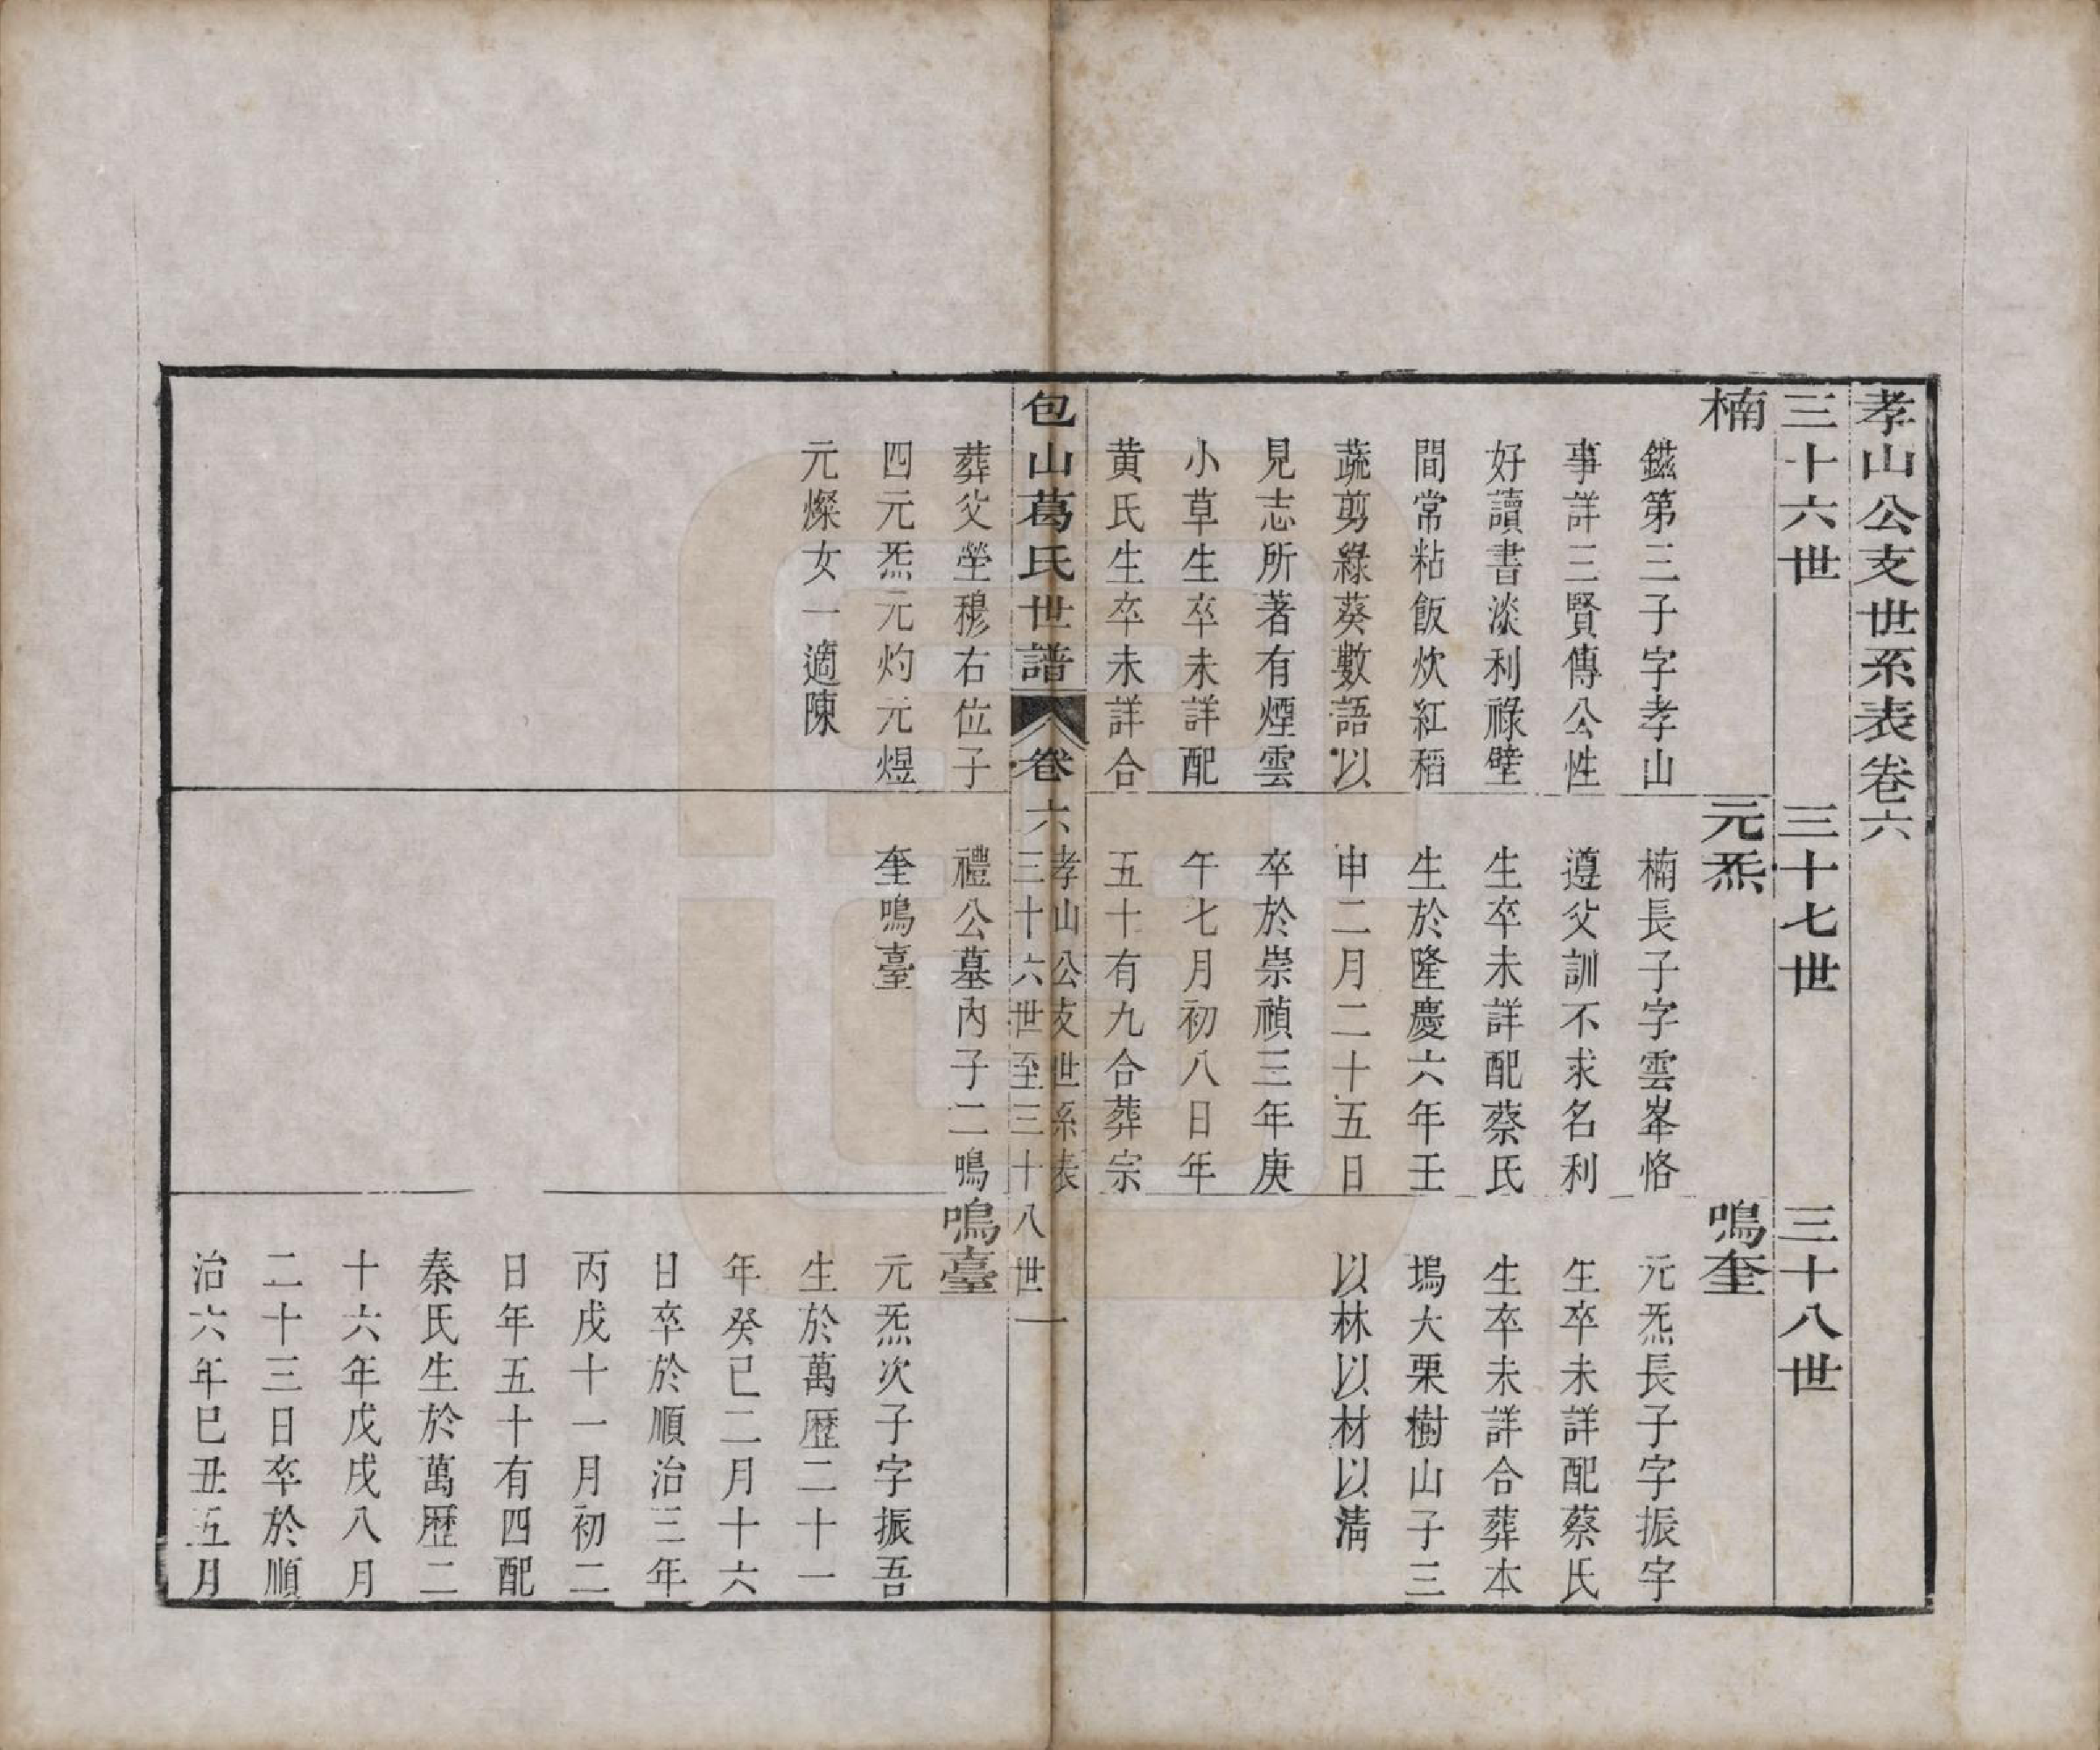 孝山公支世系表卷六
三十六世
三十七世
三十八世
楠
鎡第三子字孝山
事詳三賢傳公性
好讀書淡利祿壁
間常粘飯炊紅稻
蔬剪綠葵數語以
見志所著有煙雲
小草生卒未詳配
黄氏生卒未詳合
元炁
楠長子字雲峯恪
遵父訓不求名利
生卒未詳配蔡氏
生於隆慶六年壬
申二月二十五日
卒於崇禎三年庚
午七月初八日年
五十有九合葬宗
鳴奎
元炁長子字振宇
生卒未詳配蔡氏
生卒未詳合葬本
塢大栗樹山子三
以林以材以淸
包山葛氏世譜
卷六
孝山公支世系表
三十六世至三十八世
一
葬父塋穆右位子
四元炁元灼元煜
元燦女一適陳
禮公墓內子二鳴
奎鳴臺
鳴臺
元炁次子字振吾
生於萬歷二十一
年癸巳二月十六
日卒於順治三年
丙戌十一月初二
日年五十有四配
秦氏生於萬歷二
十六年戊戌八月
二十三日卒於順
治六年巳丑五月